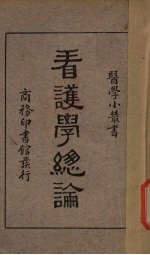 醫學小叢書
看護學總論
商務印書館發行